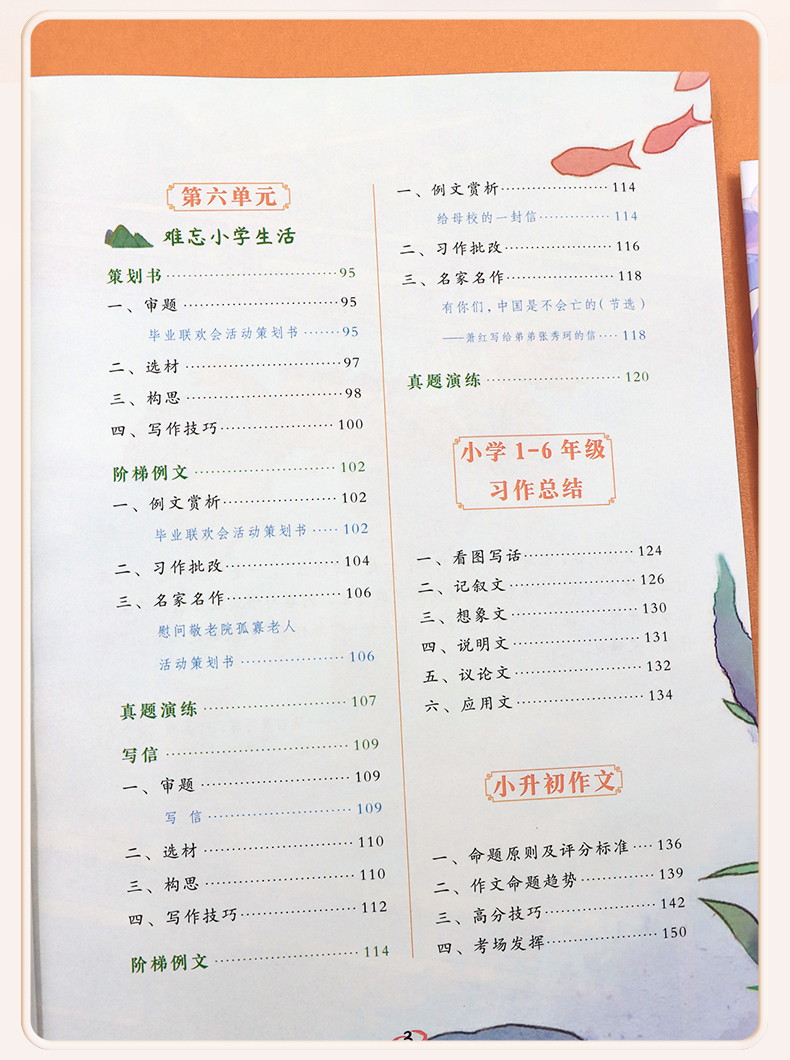 第六单元
难忘小学生活
策划书 95
一、审题 95
毕业联欢会活动策划书 95
二、选材 97
三、构思 98
四、写作技巧 100
阶梯例文 102
一、例文赏析 102
毕业联欢会活动策划书 102
二、习作批改 104
三、名家名作 106
慰问敬老院孤寡老人
活动策划书 106
真题演练 107
写信 109
一、审题 109
写信 109
二、选材 110
三、构思 110
四、写作技巧 112
阶梯例文 114
一、例文赏析 114
给母校的一封信 114
二、习作批改 116
三、名家名作 118
有你们,中国是不会亡的(节选)
——萧红写给弟弟张秀珂的信 118
真题演练 120
小学1-6年级
习作总结
一、看图写话 124
二、记叙文 126
三、想象文 130
四、说明文 131
五、议论文 132
六、应用文 134
小升初作文
一、命题原则及评分标准 136
二、作文命题趋势 139
三、高分技巧 142
四、考场发挥 150
3